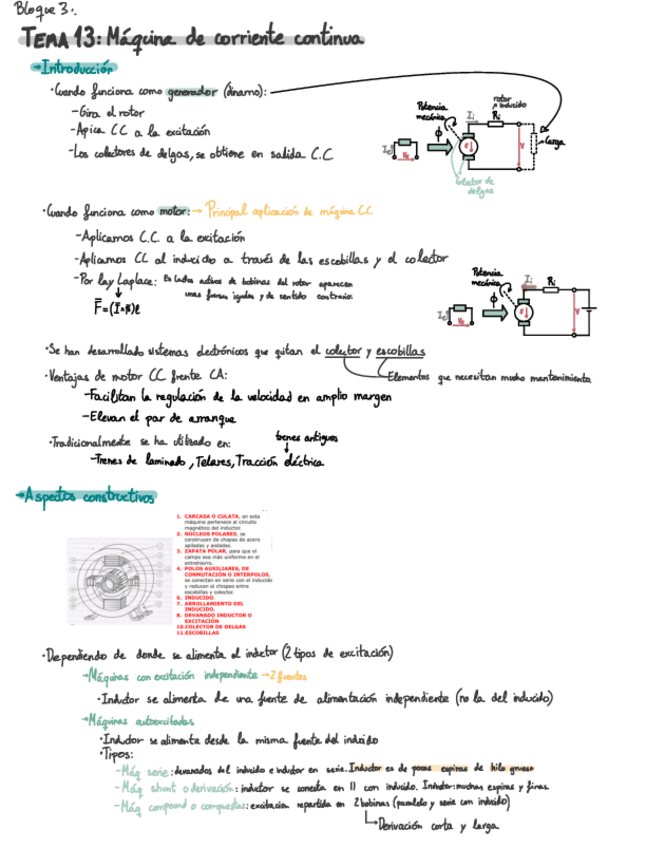 Bloque 3:
TEMA 13: Máquina de corriente continua
→Introducción
·Cuando funciona como generador (dinamo):
-Gira el rotor
-Apica CC a la excitación
-Los colectores de delgas, se obtiene en salida C.C
Potencia mecánica
ϕ
Ie
Ve
Ii
rotor inducido
Ri
E
V
Carga
Colector de delgas
·Cuando funciona como motor: → Principal aplicación de máquina CC
-Aplicamos C.C. a la excitación
-Aplicamos CC al inducido a través de las escobillas y el colector
-Por ley Laplace: En lados activos de bobinas del rotor aparecen
unas fuerzas iguales y de sentido contrario.
F=(I×B)l
Potencia mecánica
ϕ
Ie
Ve
Ii
Ri
E
V
·Se han desarrollado sistemas electrónicos que quitan el colector y escobillas
Elementos que necesitan mucho mantenimiento
·Ventajas de motor CC frente CA:
-Facilitan la regulación de la velocidad en amplio margen
-Elevan el par de arranque
·Tradicionalmente se ha utilizado en:
trenes antiguos
-Trenes de laminado, Telares, Tracción eléctrica
→Aspectos constructivos
1. CARCASA O CULATA, en esta
máquina pertenece al circuito
magnético del inductor.
2. NÚCLEOS POLARES, se
construyen de chapas de acero
apiladas y aisladas.
3. ZAPATA POLAR, para que el
campo sea más uniforme en el
entrehierro.
4. POLOS AUXILIARES, DE
CONMUTACIÓN O INTERPOLOS,
se conectan en serie con el inducido
y reducen el chispeo entre
escobillas y colector.
6. INDUCIDO.
7. ARROLLAMIENTO DEL
INDUCIDO.
8. DEVANADO INDUCTOR O
EXCITACIÓN
10.COLECTOR DE DELGAS
11.ESCOBILLAS
·Dependiendo de donde se alimenta el inductor (2 tipos de excitación)
→Máquinas con excitación independiente →2 fuentes
·Inductor se alimenta de una fuente de alimentación independiente (no la del inducido)
→Máquinas autoexcitadas
·Inductor se alimenta desde la misma fuente del inducido
·Tipos:
-Máq serie: devanados del inducido e inductor en serie. Inductor es de pocas espiras de hilo grueso
-Máq shunt o derivación: inductor se conecta en || con inducido. Inductor: muchas espiras y finas.
-Máq compound o compuestas: excitacion repartida en 2 bobinas (paralelo y serie con inducido)
Derivación corta y larga